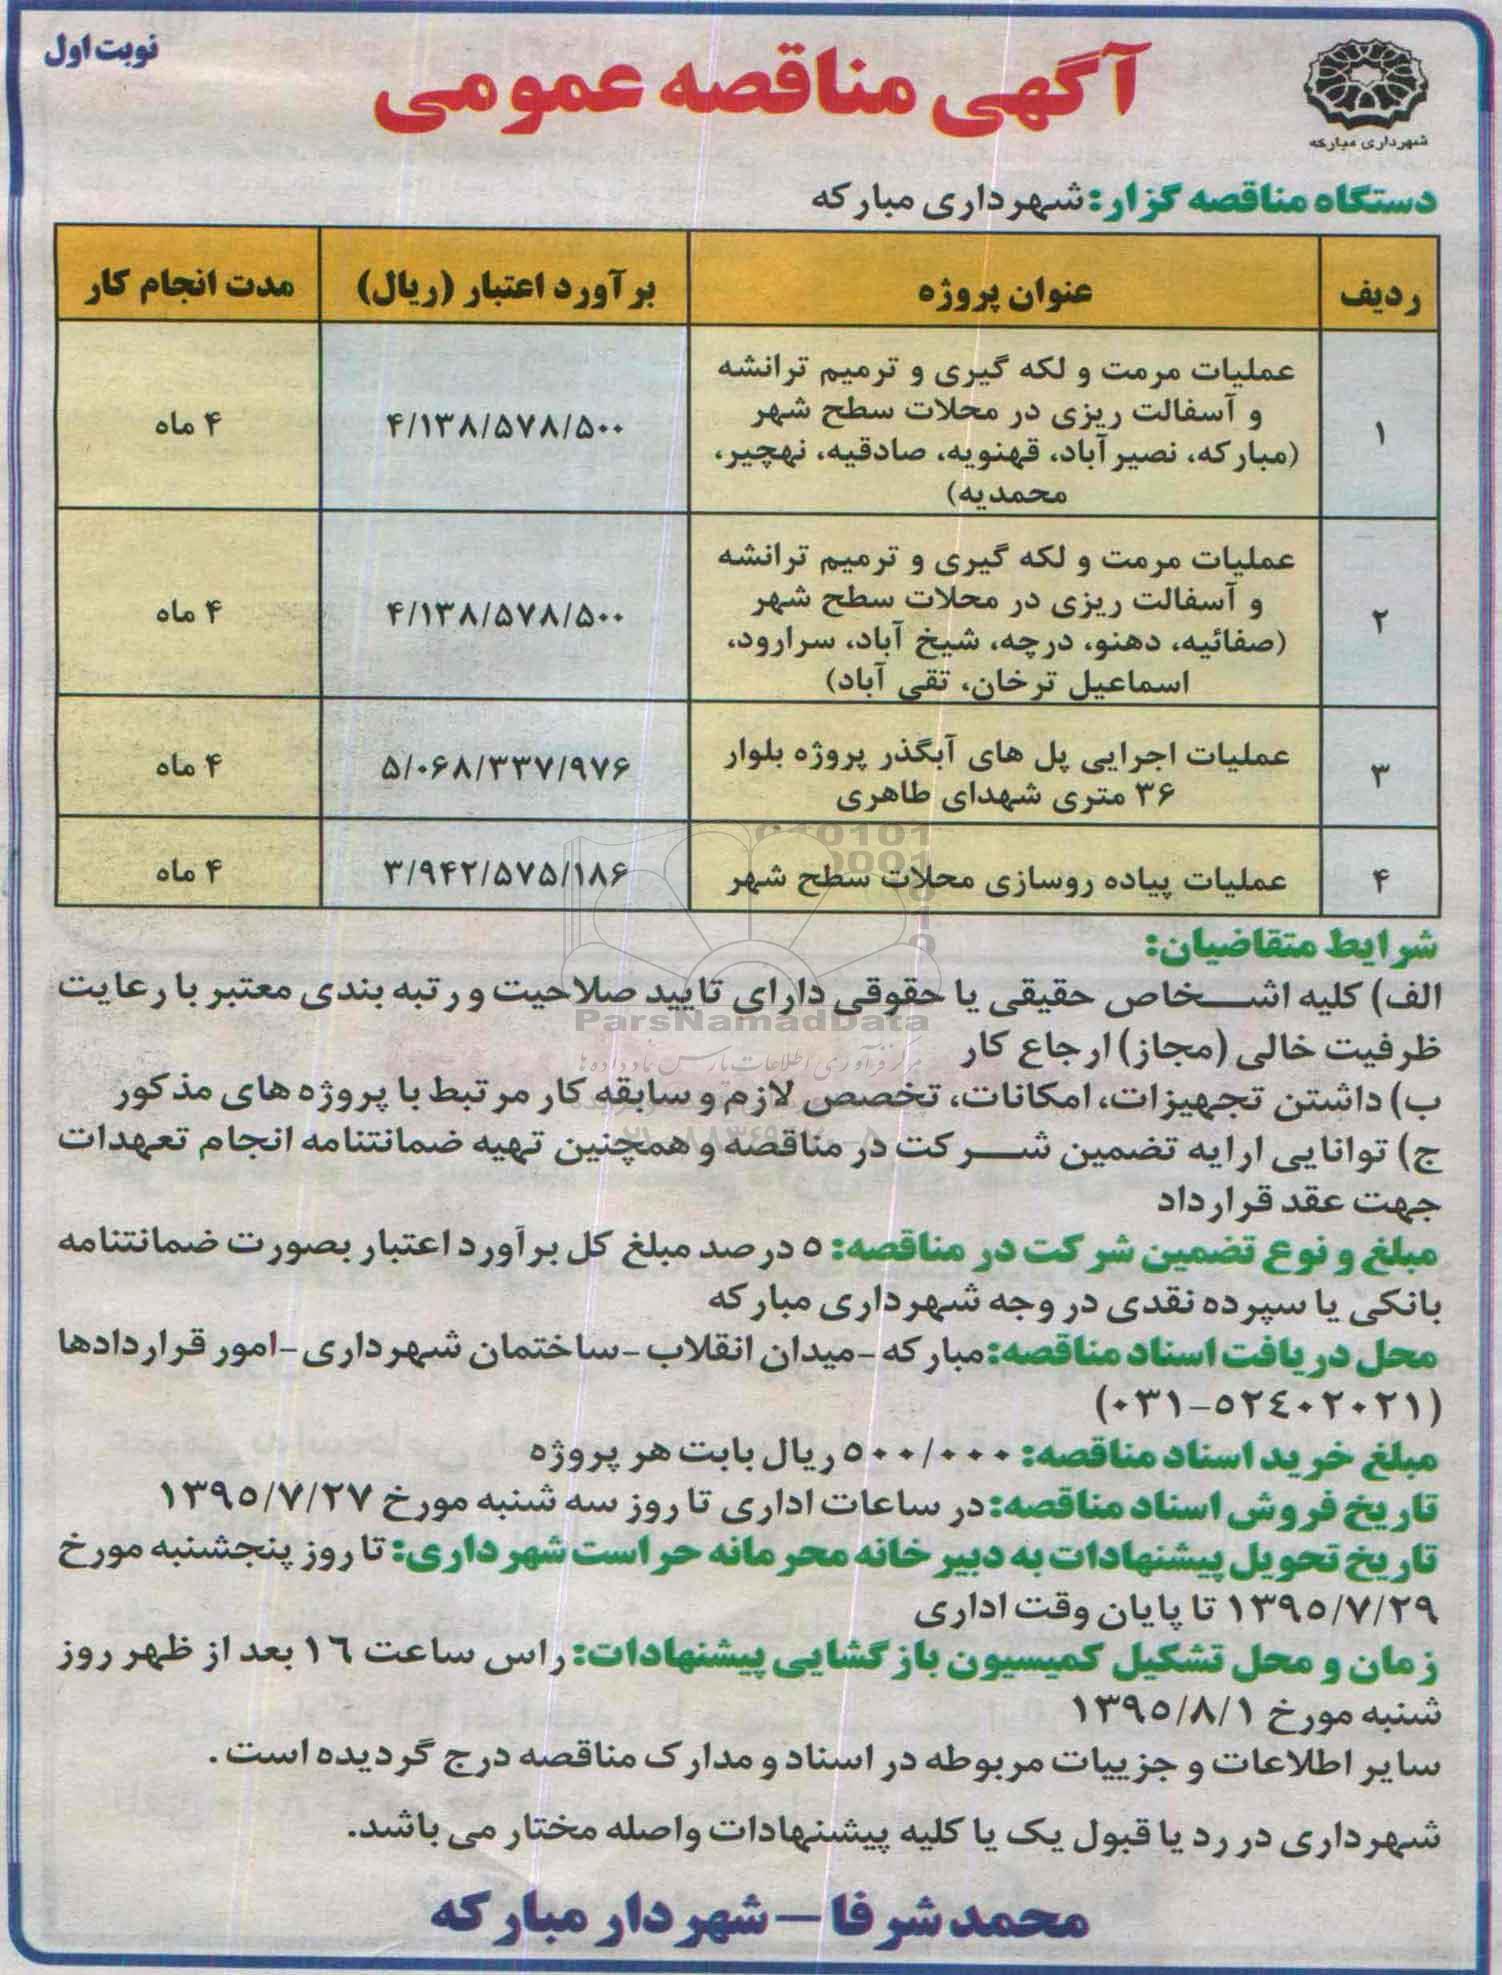 نوبت اول
آگهی مناقصه عمومی
شهرداری مبارکه
دستگاه مناقصه گزار: شهرداری مبارکه
ردیف	عنوان پروژه	برآورد اعتبار (ریال)	مدت انجام کار
۱
عملیات مرمت و لکه گیری و ترمیم ترانشه
و آسفالت ریزی در محلات سطح شهر
(مبارکه، نصیرآباد، قهنویه، صادقیه، نهچیر،
محمدیه)
۴/۱۳۸/۵۷۸/۵۰۰
۴ ماه
۲
عملیات مرمت و لکه گیری و ترمیم ترانشه
و آسفالت ریزی در محلات سطح شهر
(صفائیه، دهنو، درچه، شیخ آباد، سرارود،
اسماعیل ترخان، تقی آباد)
۴/۱۳۸/۵۷۸/۵۰۰
۴ ماه
۳
عملیات اجرایی پل های آبگذر پروژه بلوار
۳۶ متری شهدای طاهری
۵/۰۶۸/۳۳۷/۹۷۶
۴ ماه
۴
عملیات پیاده روسازی محلات سطح شهر
۳/۹۴۲/۵۷۵/۱۸۶
۴ ماه
شرایط متقاضیان:
الف) کلیه اشخاص حقیقی یا حقوقی دارای تایید صلاحیت و رتبه بندی معتبر با رعایت
ظرفیت خالی (مجاز) ارجاع کار
ب) داشتن تجهیزات، امکانات، تخصص لازم و سابقه کار مرتبط با پروژه های مذکور
ج) توانایی ارایه تضمین شرکت در مناقصه و همچنین تهیه ضمانتنامه انجام تعهدات
جهت عقد قرارداد
مبلغ و نوع تضمین شرکت در مناقصه: ۵ درصد مبلغ کل برآورد اعتبار بصورت ضمانتنامه
بانکی یا سپرده نقدی در وجه شهرداری مبارکه
محل دریافت اسناد مناقصه: مبارکه -میدان انقلاب -ساختمان شهرداری -امور قراردادها
(۰۳۱-۵۲۴۰۲۰۲۱)
مبلغ خرید اسناد مناقصه: ۵۰۰/۰۰۰ ریال بابت هر پروژه
تاریخ فروش اسناد مناقصه: در ساعات اداری تا روز سه شنبه مورخ ۱۳۹۵/۷/۲۷
تاریخ تحویل پیشنهادات به دبیرخانه محرمانه حراست شهرداری: تا روز پنجشنبه مورخ
۱۳۹۵/۷/۲۹ تا پایان وقت اداری
زمان و محل تشکیل کمیسیون بازگشایی پیشنهادات: راس ساعت ۱۶ بعد از ظهر روز
شنبه مورخ ۱۳۹۵/۸/۱
سایر اطلاعات و جزییات مربوطه در اسناد و مدارک مناقصه درج گردیده است.
شهرداری در رد یا قبول یک یا کلیه پیشنهادات واصله مختار می باشد.
محمد شرفا – شهردار مبارکه
ParsNamadData
مرکز فرآوری اطلاعات پارس نماد داده ها